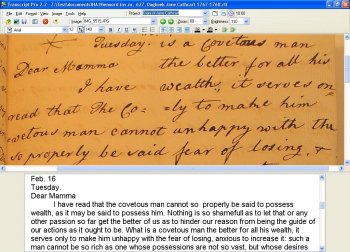 Transcript Pro 2.2 - Z:\Test documents\HA\Memoind inv.nr. 627, Dagboek Jane Cathcart 1767-1768.rtf
Project
Image IMG_5515.JPG Zoom 80 Brightness 110
Arial 12 140
Tuesday. is a Covetous man
Dear Mamma the better for all his
I have wealth, it serves on
read that The Co= =ly to make him
=vetous man cannot unhappy with the
so properly be said fear of losing, &
Feb. 16
Tuesday.
Dear Mamma
I have read that the covetous man cannot so properly be said to possess
wealth, as it may be said to possess him. Nothing is so shamefull as to let that or any
other passion so far get the better of us as to hinder our reason from being the guide of
our actions as it ought to be. What is a covetous man the better for all his wealth, it
serves only to make him unhappy with the fear of losing, anxious to increase it: such a
man cannot be so rich as one whose possessions are not so vast, but whose desires